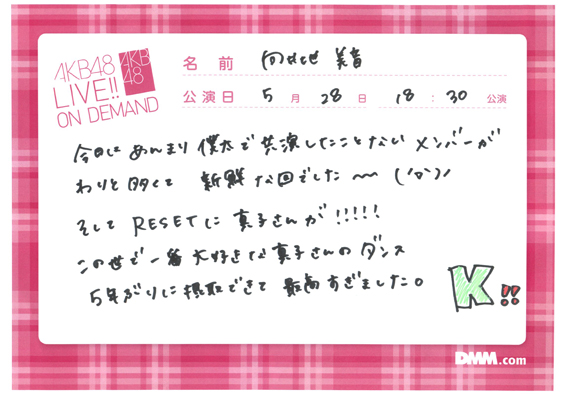 AKB48
LIVE!!
ON DEMAND
AKB
48
名前 向井地 美音
公演日 5月 28日 18:30 公演
今日は あんまり 僕太で 共演したことない メンバーが
わりと多くて 新鮮な回でした〜〜
そして RESETに 真子さんが!!!!!
この世で一番 大好きな真子さんの ダンス
5年ぶりに摂取できて 最高すぎました。
K!!
DMM.com